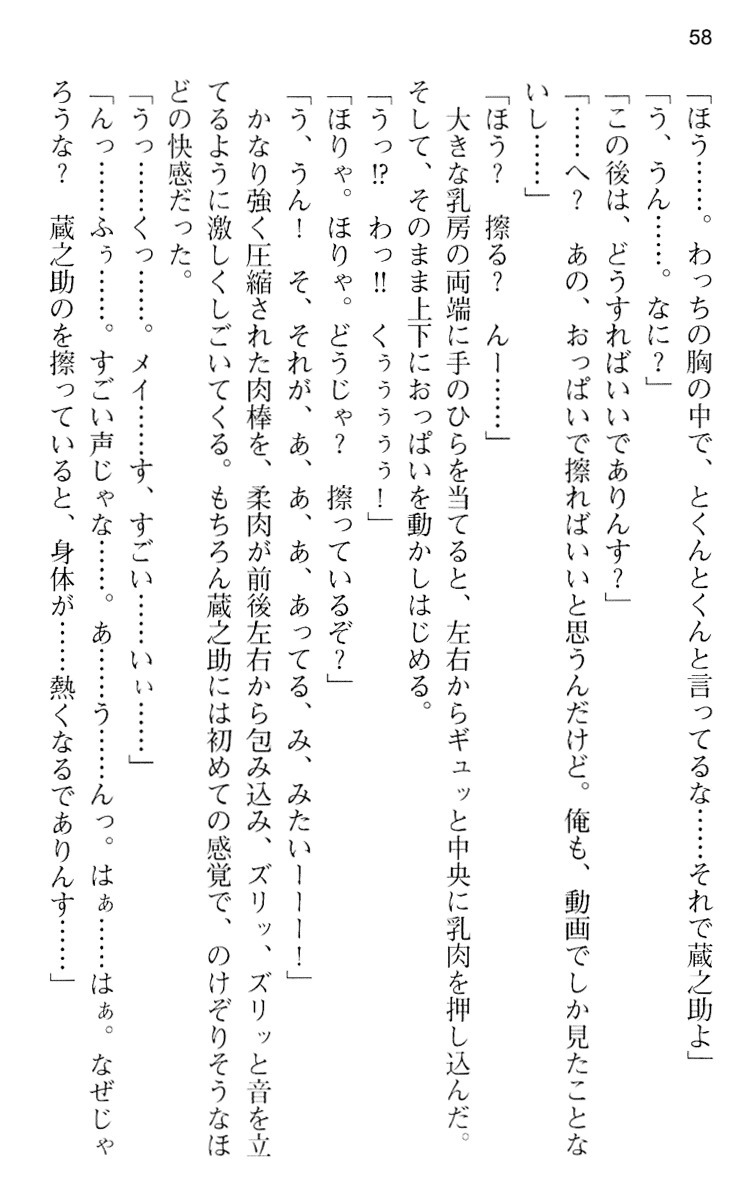 58
「ほう……。わっちの胸の中で、とくんとくんと言ってるな……それで蔵之助よ」
「う、うん……。なに？」
「この後は、どうすればいいでありんす？」
「……へ？　あの、おっぱいで擦ればいいと思うんだけど。俺も、動画でしか見たことな
いし……」
「ほう？　擦る？　んー……」
　大きな乳房の両端に手のひらを当てると、左右からギュッと中央に乳肉を押し込んだ。
そして、そのまま上下におっぱいを動かしはじめる。
「うっ!?　わっ!!　くぅぅぅぅぅ！」
「ほりゃ。ほりゃ。どうじゃ？　擦っているぞ？」
「う、うん！　そ、それが、あ、あ、あ、あってる、み、みたいーーー！」
　かなり強く圧縮された肉棒を、柔肉が前後左右から包み込み、ズリッ、ズリッと音を立
てるように激しくしごいてくる。もちろん蔵之助には初めての感覚で、のけぞりそうなほ
どの快感だった。
「うっ……くっ……。メイ……す、すごい……いぃ……」
「んっ……ふぅ……。すごい声じゃな……。あ……う……んっ。はぁ……はぁ。なぜじゃ
ろうな？　蔵之助のを擦っていると、身体が……熱くなるでありんす……」